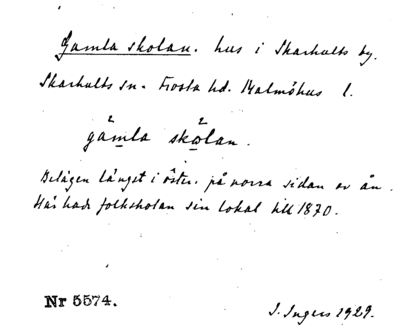 Gamla skolan. hus i Skarhults by.
Skarhults sn. Frosta hd. Malmöhus l.
2 2
gamla skolan.
Belägen längst i öster. på norra sidan av ån.
Här hade folkskolan sin lokal till 1870.
Nr 5574.
I. Ingers 1929.